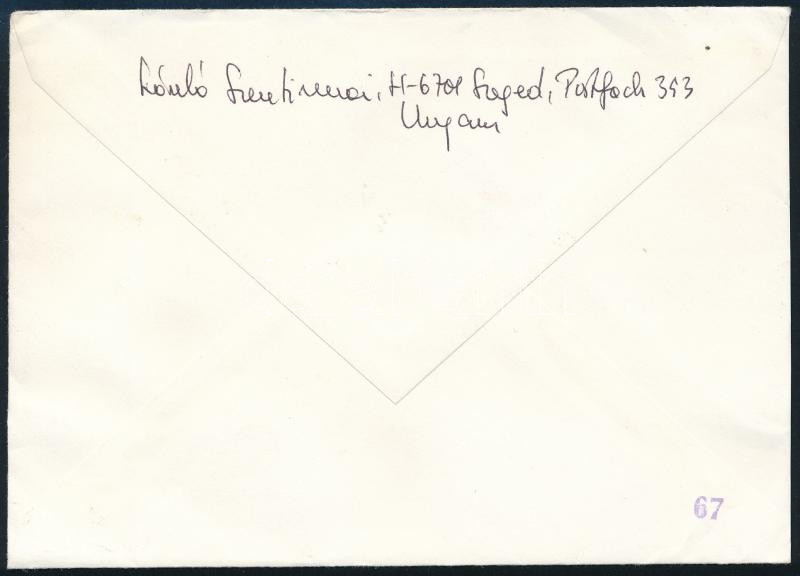 László Szentirmai, H-6701 Szeged, Postfach 353
Ungarn
67